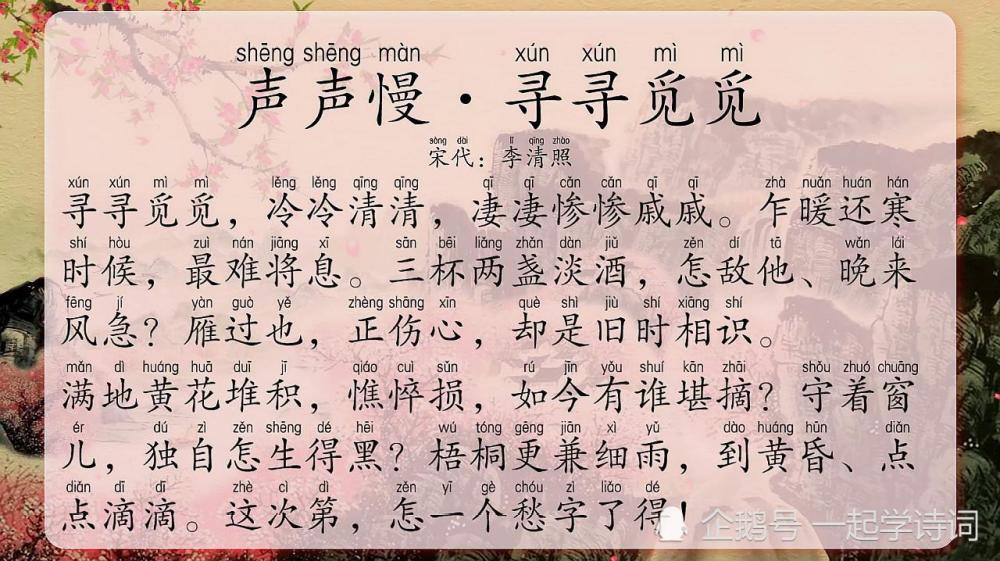 shēng shēng màn xún xún mì mì
声声慢·寻寻觅觅
sòng dài lǐ qīng zhào
宋代：李清照
xún xún mì mì lěng lěng qīng qīng qī qī cǎn cǎn qī qī zhà nuǎn huán hán
寻寻觅觅，冷冷清清，凄凄惨惨戚戚。乍暖还寒
shí hòu zuì nán jiāng xī sān bēi liǎng zhǎn dàn jiǔ zěn dí tā wǎn lái
时候，最难将息。三杯两盏淡酒，怎敌他、晚来
fēng jí yàn guò yě zhèng shāng xīn què shì jiù shí xiāng shí
风急？雁过也，正伤心，却是旧时相识。
mǎn dì huáng huā duī jī qiáo cuì sǔn rú jīn yǒu shuí kān zhāi shǒu zhuó chuāng
满地黄花堆积，憔悴损，如今有谁堪摘？守着窗
ér dú zì zěn shēng dé hēi wú tóng gèng jiān xì yǔ dào huáng hūn diǎn
儿，独自怎生得黑？梧桐更兼细雨，到黄昏、点
diǎn dī dī zhè cì dì zěn yī gè chóu zì liǎo dé
点滴滴。这次第，怎一个愁字了得！
企鹅号 一起学诗词